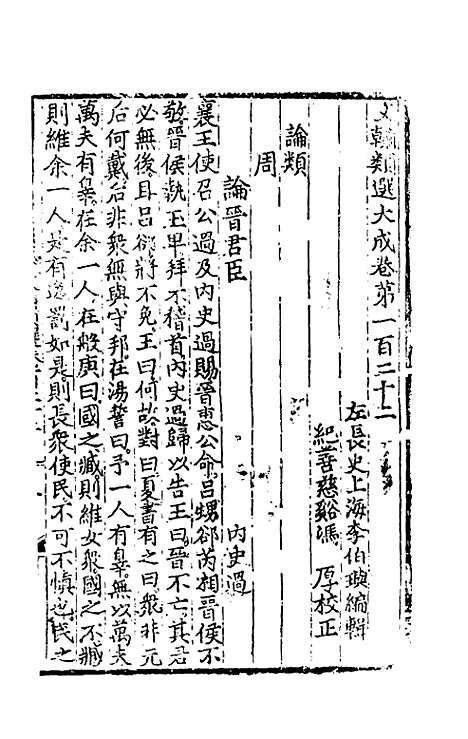 文翰類選大成卷第一百二十二
左長史上海李伯璵編輯
紀善慈谿馮厚校正
論類
周
論晉君臣
內史過
襄王使召公過及內史過賜晉惠公命吕甥郤芮相晉侯不
敬晉侯執玉卑拜不稽首內史過歸以告王曰晉不亡其君
必無後且吕郤將不免王曰何故對曰夏書有之曰衆非元
后何戴后非衆無與守邦在湯誓曰予一人有辠無以萬夫
萬夫有辠在余一人在般庚曰國之臧則維女衆國之不臧
則維余一人是有逸罰如是則長衆使民不可不愼也民之